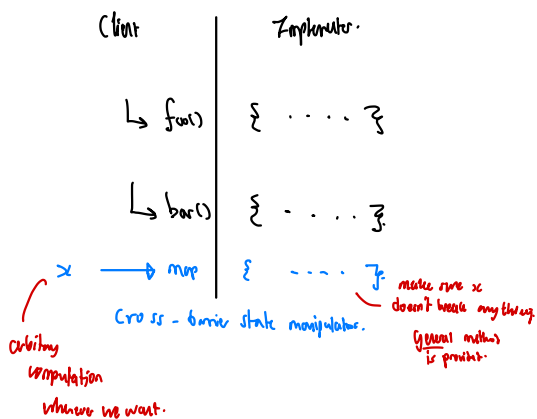 Client Implementer.
↳ foo() { .... }
↳ bar() { .... }.
x → map { .... }.
Cross-barrier state manipulation.
make sure x
doesn't break anything.
General method
is provided.
arbitrary
computation
wherever we want.